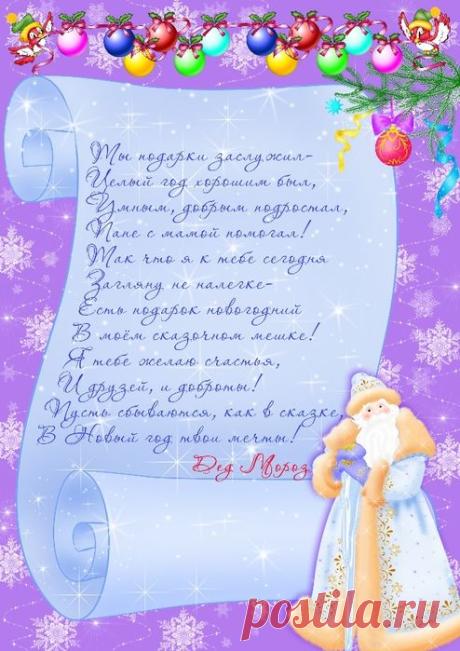 Ты подарки заслужил-
Целый год хорошим был,
Умным, добрым подростал,
Папе с мамой помогал!
Так что я к тебе сегодня
Загляну не налегке-
Есть подарок новогодний
В моём сказочном мешке!
Я тебе желаю счастья,
И друзей, и доброты!
Пусть сбываются, как в сказке,
В Новый год твои мечты!
Дед Мороз
postila.ru